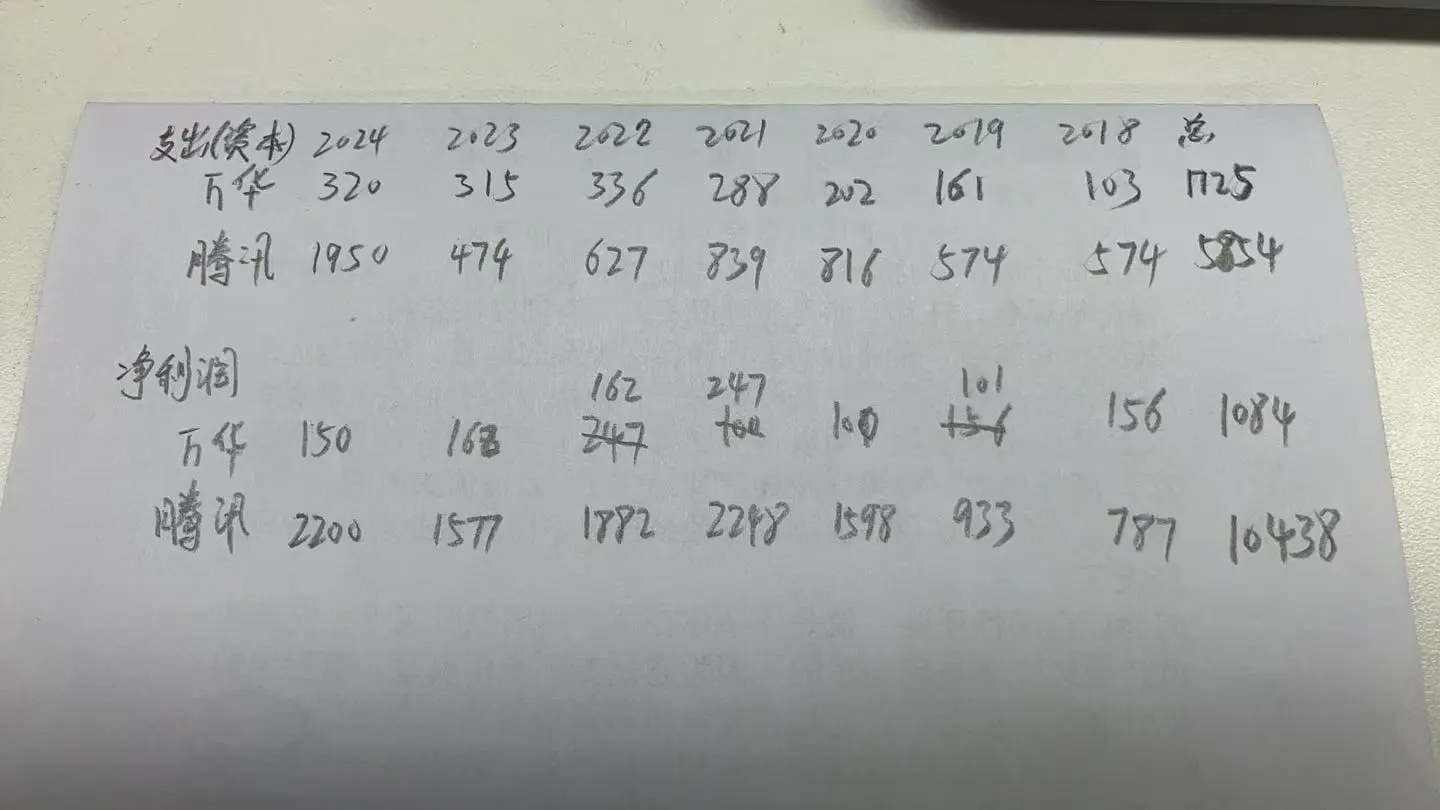 支出(资本) 2024 2023 2022 2021 2020 2019 2018 总
万华 320 315 336 288 202 161 103 1725
腾讯 1950 474 627 839 816 574 574 5854
净利润
162 247 101
万华 150 168 247 100 100 156 156 1084
腾讯 2200 1577 1882 2248 1598 933 787 10438